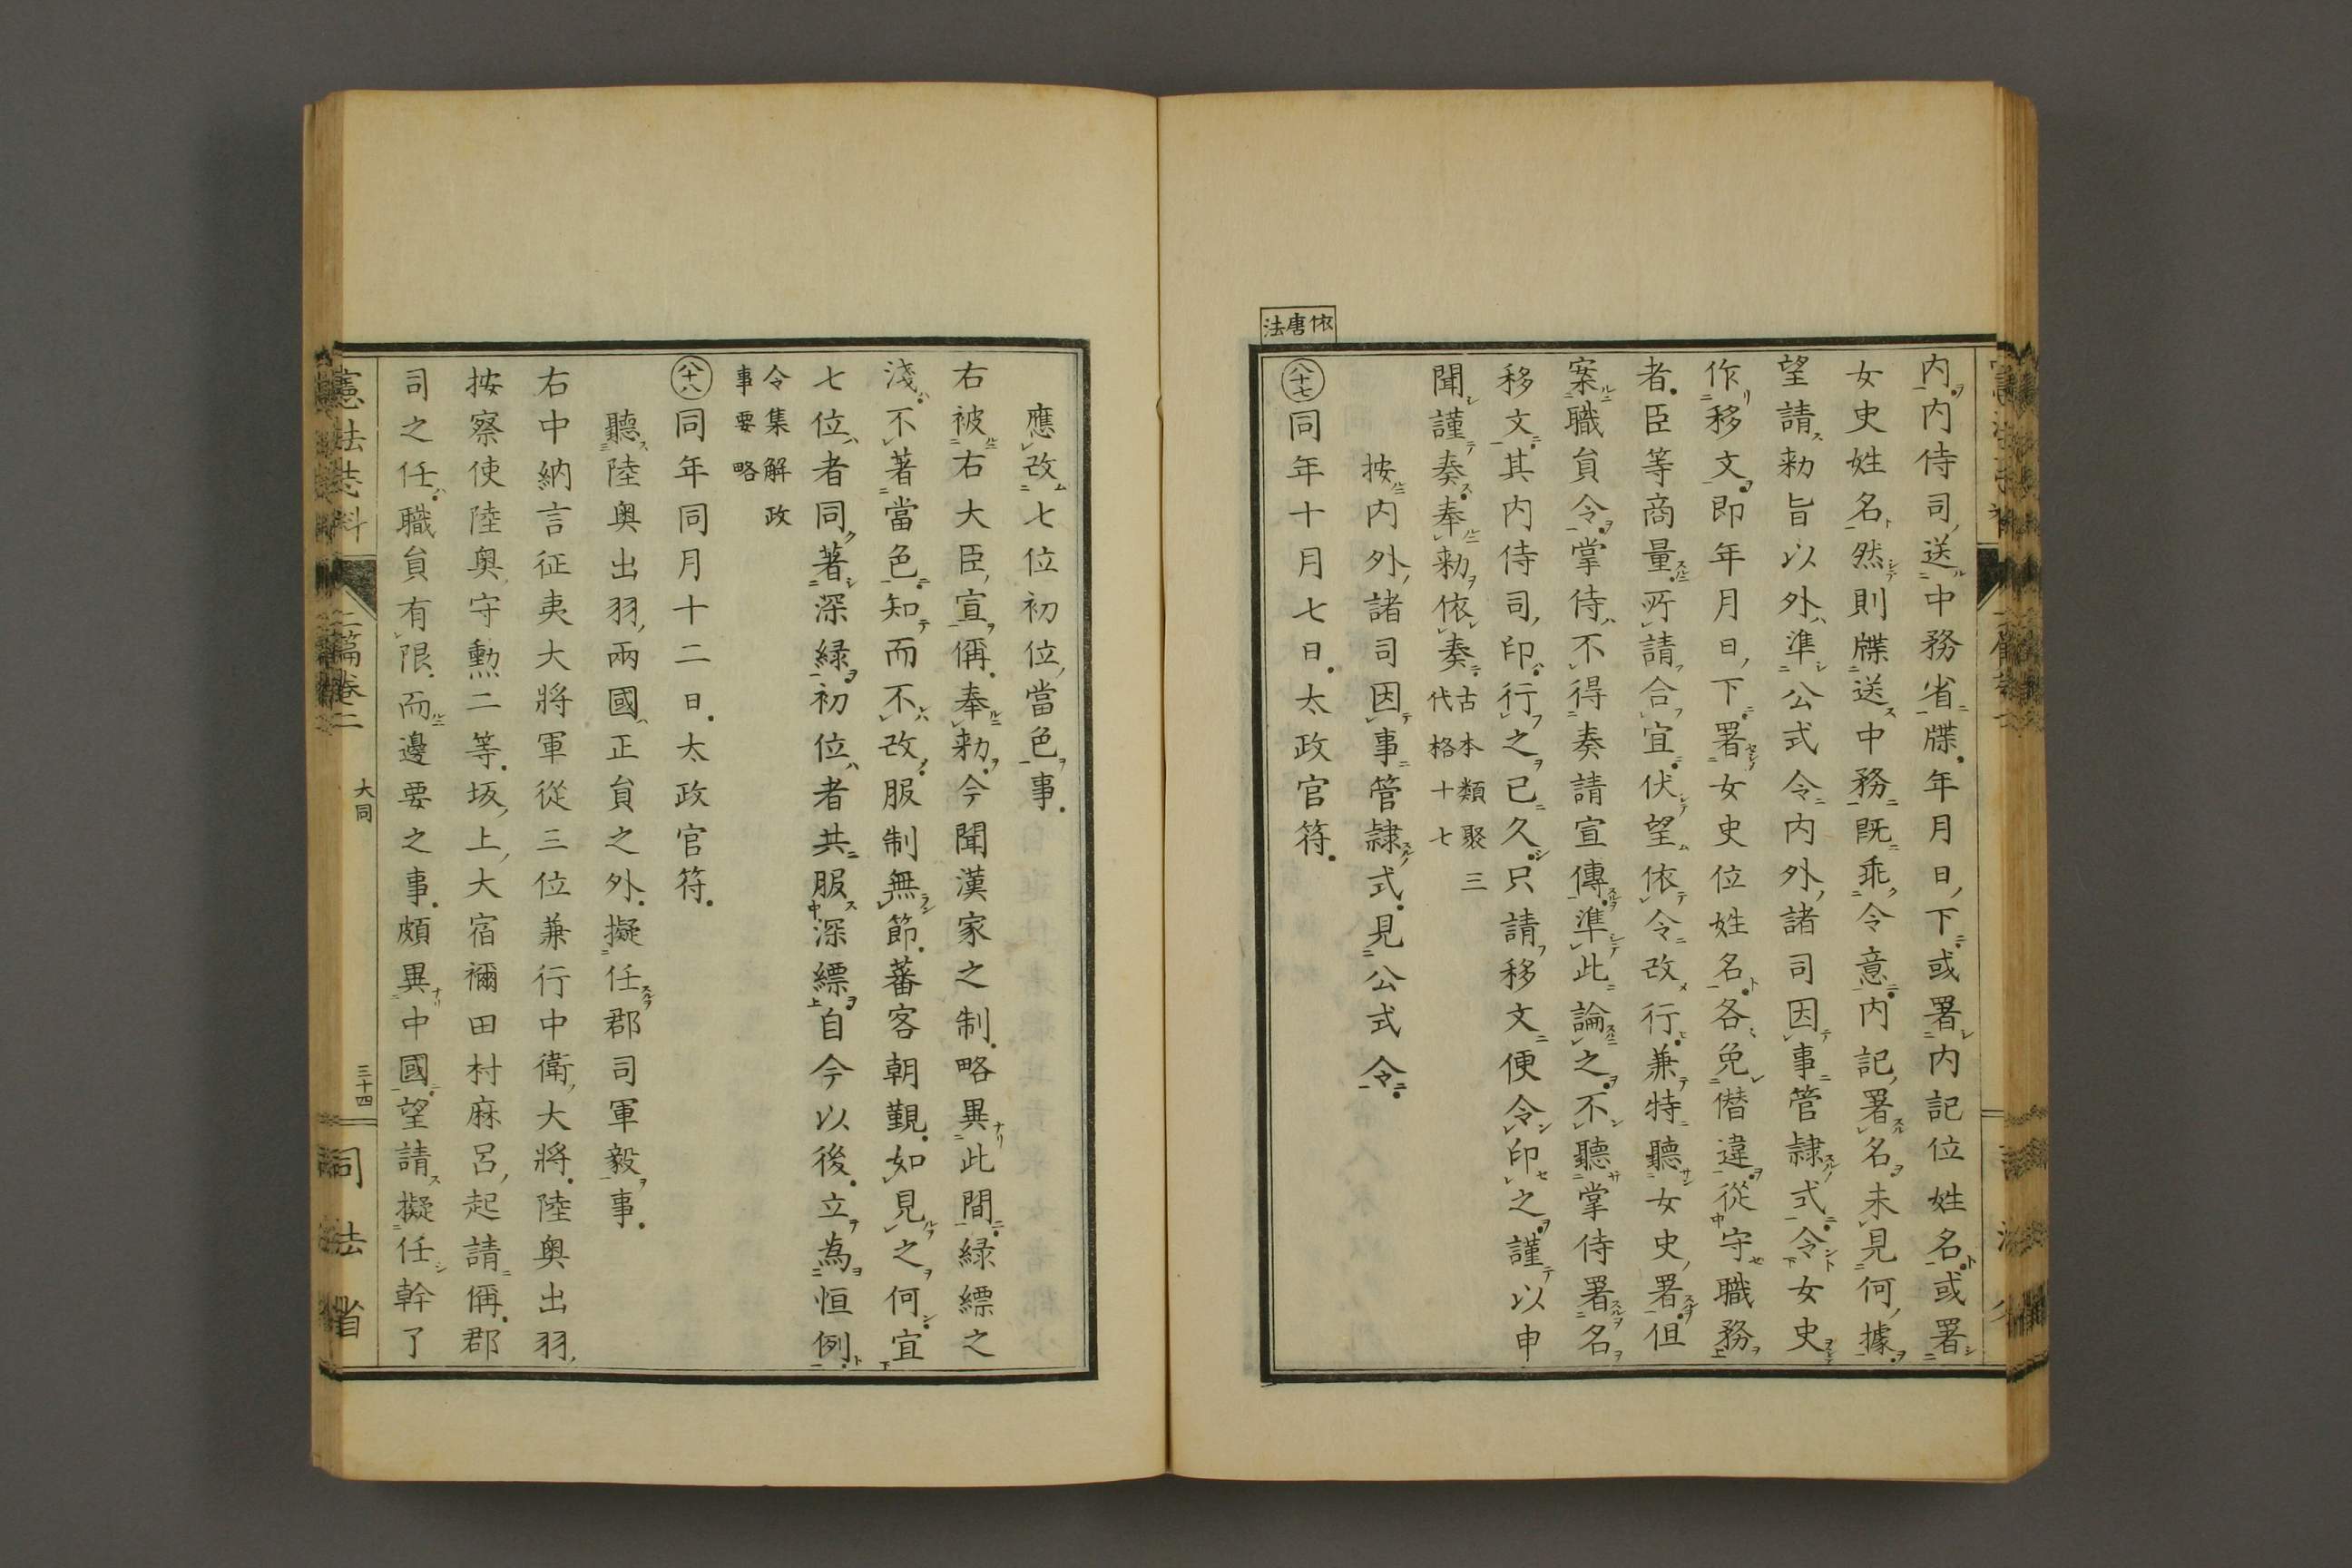 依唐法
内内侍司送中務省牒年月日下或署内記位姓名或署
女史姓名然則牒送中務既乖令意内記署名未見何據
望請勅旨以外準公式令内外諸司因事管隷式令女史
作移文即年月日下署女史位姓名各免僣違從守職務
者臣等商量所請合宜伏望依令改行兼特聽女史署但
案職員令掌侍不得奏請宣傳準此論之不聽掌侍署名
移文其内侍司印行之已久只請移文便令印之謹以申
聞謹奏奉勅依奏古本類聚三
代格十七
按内外諸司因事管隷式見公式令
八十七同年十月七日太政官符
應改七位初位當色事
右被右大臣宣偁奉勅今聞漢家之制略異此間緑縹之
淺不著當色知而不改服制無節蕃客朝覲如見之何宜
七位者同著深緑初位者共服深縹自今以後立為恒例
令集解政
事要略
八十八同年同月十二日太政官符
聽陸奥出羽兩國正員之外擬任郡司軍毅事
右中納言征夷大將軍從三位兼行中衛大將陸奥出羽
按察使陸奥守勲二等坂上大宿禰田村麻呂起請偁郡
司之任職員有限而邊要之事頗異中國望請擬任幹了
憲法志料
二篇卷二
大同
三十四
司法省